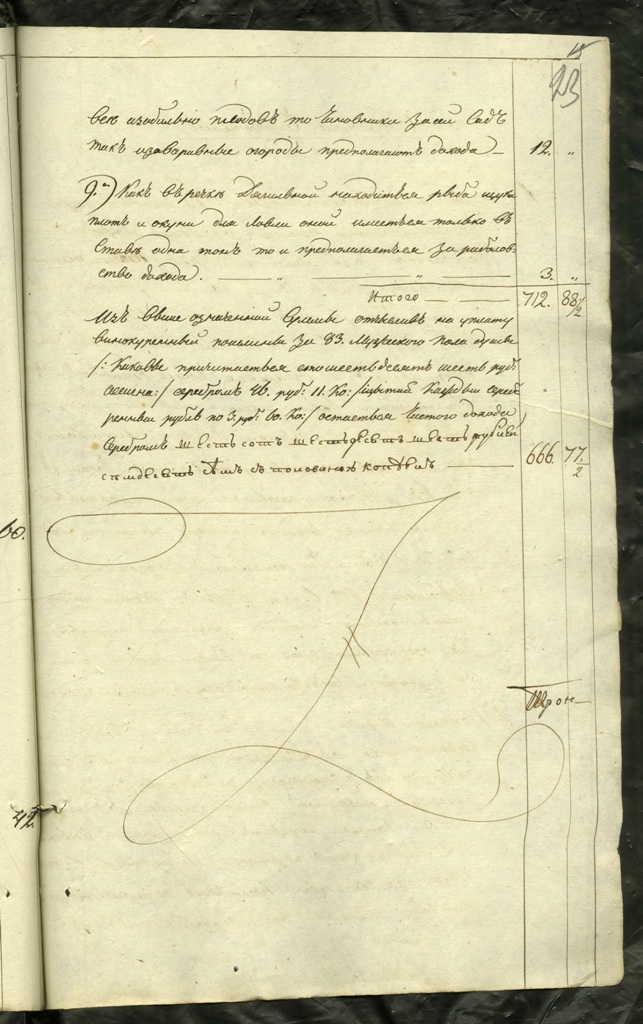 23
всю изобильно плодовъ то Чиновники за сей Садъ
такъ и заваривные огороды предполагаютъ дохода — 12. „
9.е) Какъ въ речкѣ находится рыба щука
плотъ и окуни для ловли оной имеется только въ
Ставѣ одна то и предполагается за рыболов-
ство дохода. — „ — „ — 3. „
Итого — 712. 88 1/2
Изъ Выше означенной Суммы отчисливъ на уплату
винокуренной пошлины за 83. Мужеского пола души
/: Каковые причитается сто шестьдесятъ шесть руб:
ассигна:/ серебромъ 46. руб. 11. Ко: /щитая Каждый сереб-
ренный рубль по 3. руб. 60. Ко:/ остается Чистого дохода
Серебромъ шестъ сотъ шестьдесятъ шесть рублей
семдесятъ семъ съ половиною копѣекъ — 666. 77 1/2
60.
42